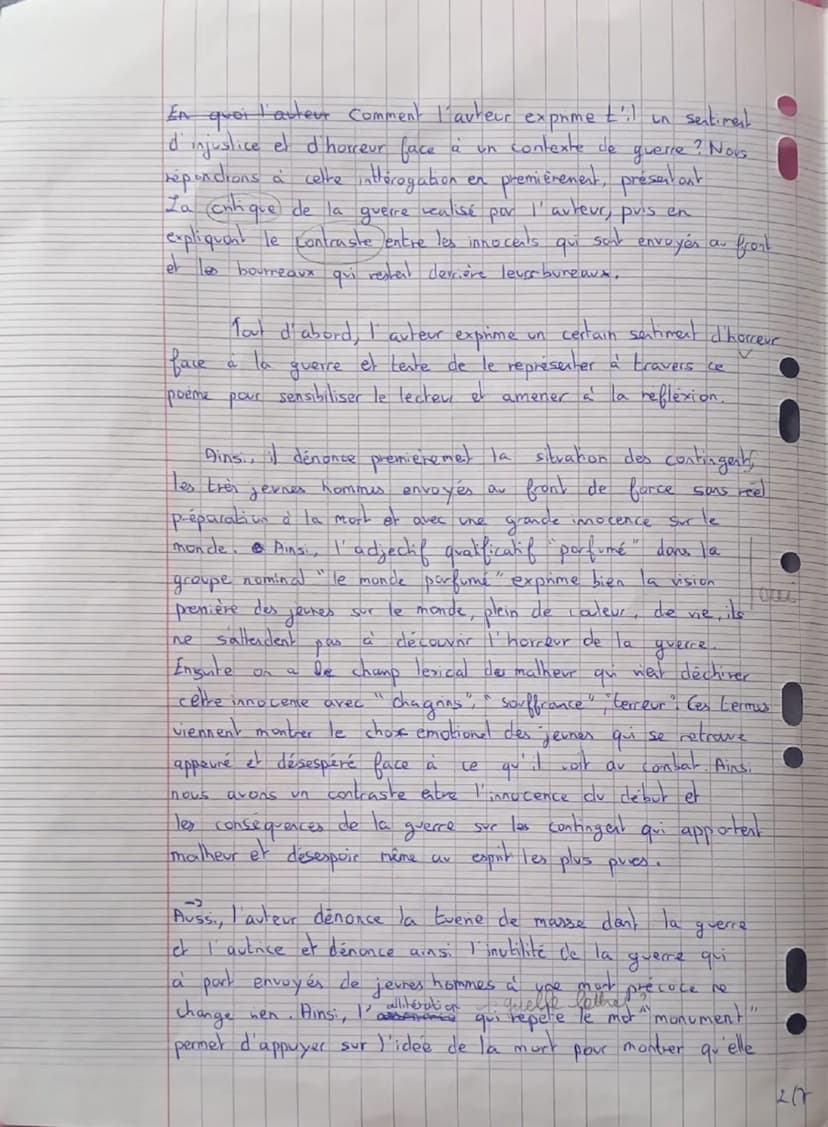 En quoi l'auteur Comment l'auteur exprime t'il un sentiment
d'injustice et d'horreur face à un contexte de guerre ? Nous
répondrons à cette intterogation en premièrement, présentant
La critique de la guerre realisé par l'auteur, puis en
expliquant le contraste entre les innocents qui sont envoyés au front
et les bourreaux qui restent derrière leurs bureaux.
Tout d'abord, l'auteur exprime un certain sentiment d'horreur
face à la guerre et tente de le représenter à travers ce
poème pour sensibiliser le lecteur et amener à la refléxion.
Ainsi, il dénonce premièrement la situation des contingents,
les très jeunes hommes envoyés au front de force sans réel
préparation à la mort et avec une grande innocence sur le
monde. Ainsi, l'adjectif qualificatif "parfumé" dans la
groupe nominal "le monde parfumé" exprime bien la vision
première des jeunes sur le monde, plein de valeur, de vie, ils
oui
ne s'attendent pas à découvrir l'horreur de la guerre.
Ensuite on a le champ lexical du malheur qui vient déchirer
cette innocence avec "chagrins", "souffrance", "terreur". Ces termes
viennent montrer le choc emotionel des jeunes qui se retrouve
appeuré et désespéré face à ce qu'il voit au combat. Ainsi
nous avons un contraste entre l'innocence du début et
les conséquences de la guerre sur les contingent qui apportent
malheur et désespoir même au esprit les plus pures.
Aussi, l'auteur dénonce la tuerie de masse dont la guerre
et l'autrice et dénonce ainsi l'inutilité de la guerre qui
à part envoyés de jeunes hommes à une mort précoce ne
change rien. Ainsi, l'allitération qui répète le mot "monument"
quelle lettre?
permet d'appuyer sur l'idée de la mort pour montrer qu'elle